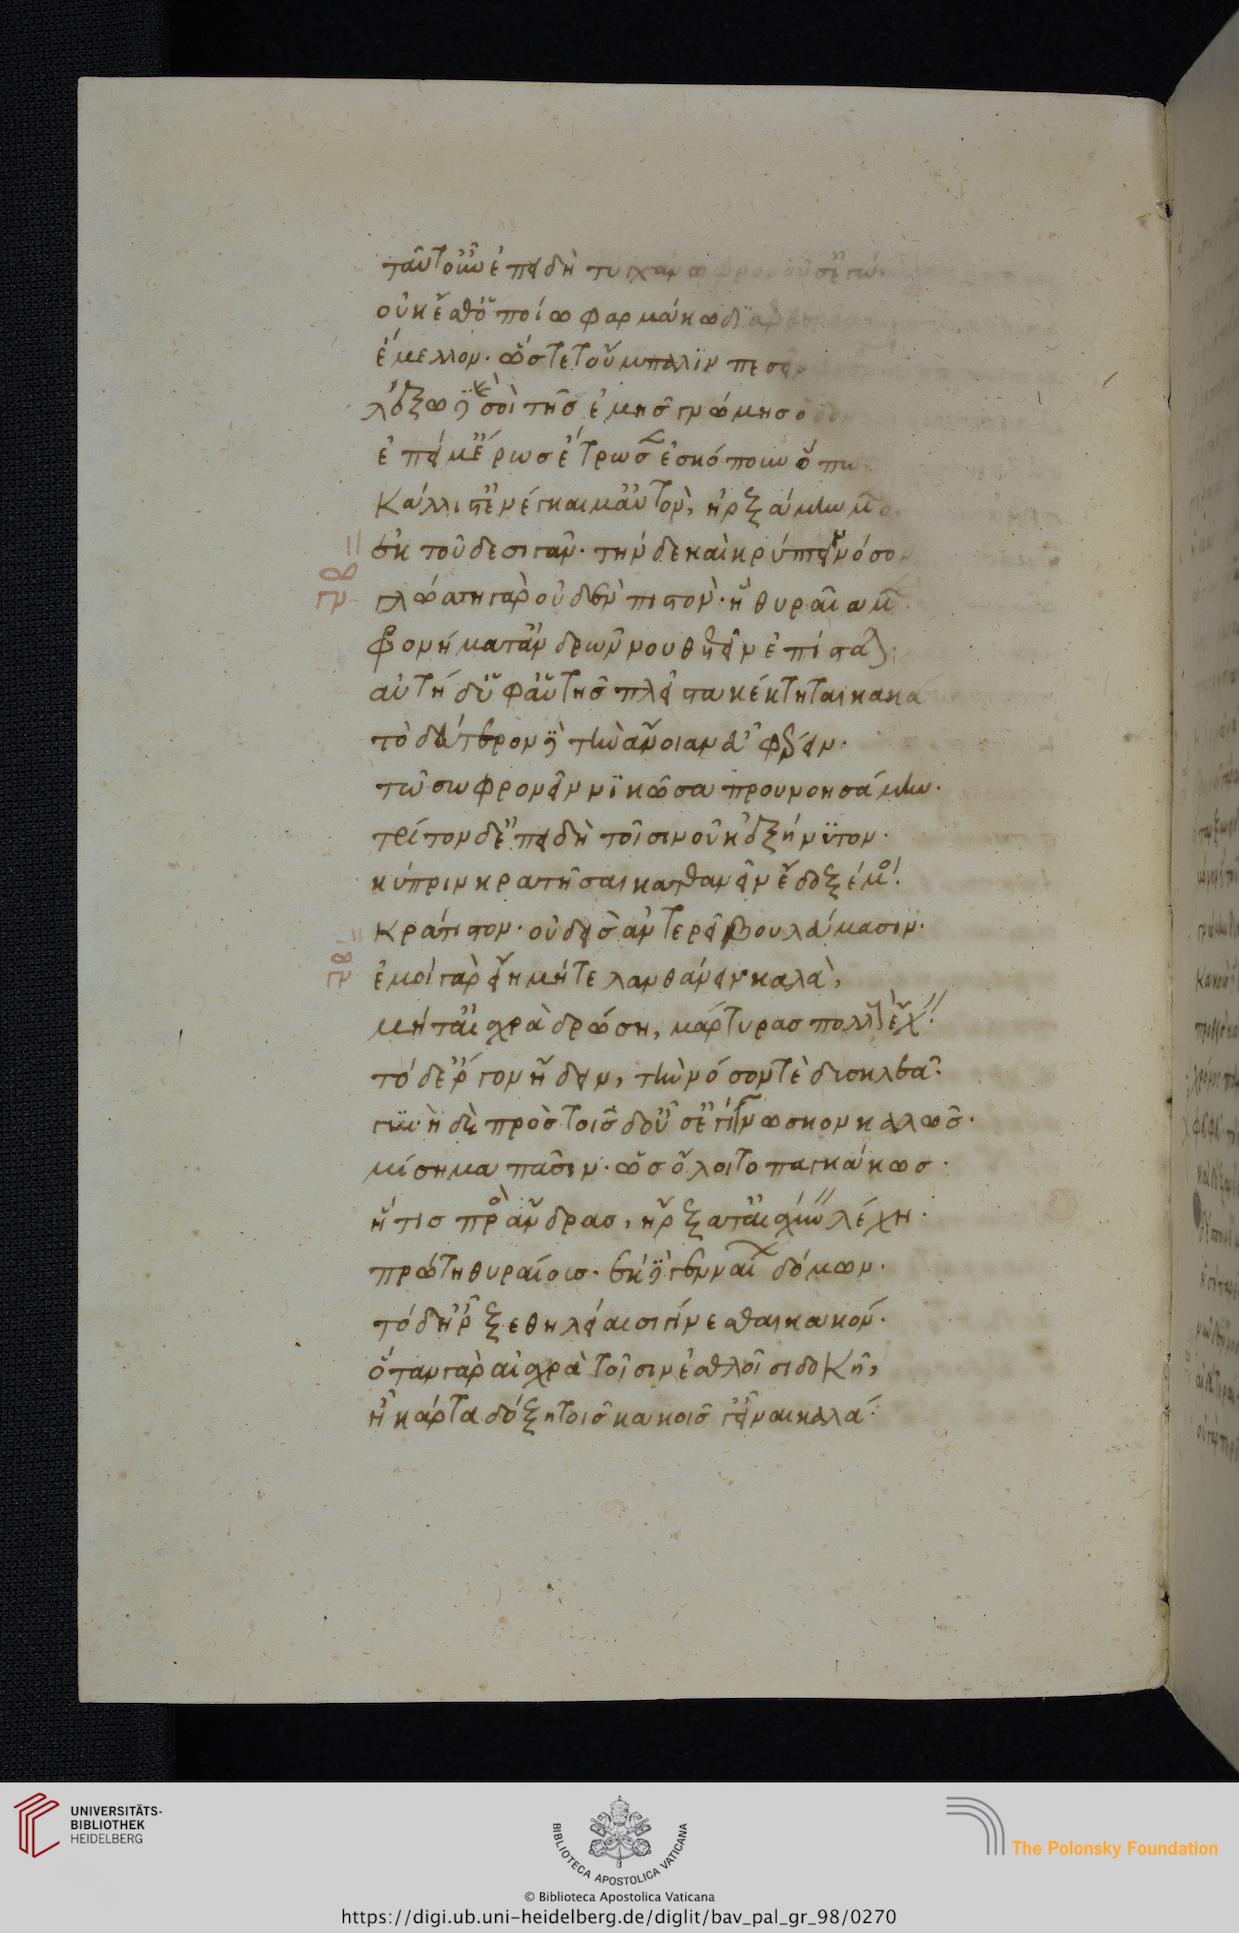 ταῦτ' οὖν ἐπειδὴ τυγχάνω φρονοῦσ' ἐγώ
οὐκ ἔσθ' ὁποίω φαρμάκω δϊαφθ
ἔμελλον· ὥστε τοὔμπαλϊν πεσεῖν
λέξω δὲ καὶ σοὶ τῆς ἐμῆς γνώμης ὁδὸν
ἐπεί μ' ἔρως ἔτρωσεν ἐσκόπουν ὅπως
Κάλλιστ' ἐνέγκαιμ' αὐτὸν, ἠρξάμην μὲν
ἐκ τοῦδε σιγᾶν· τήνδε καὶ κρύπτειν νόσον
γλώσση γὰρ οὐδὲν πιστὸν· ἣ θυραῖα μὲν
φρονήματ' ἀνδρῶν νουθετεῖν ἐπίσταται·
αὐτή δ' ὑφ' αὑτῆς πλεῖστα κέκτηται κακά
τὸ δεύτερον δὲ τὴν ἄνοιαν εὖ φέρειν·
τῶ σωφρονεῖν νϊκῶσα προυνοησάμην·
τρίτον δ' ἐπειδὴ τοῖσιν οὐκ ἐξήνϋτον·
κύπριν κρατῆσαι κατθανεῖν ἔδοξέ μοι·
κράτιστον· οὐδεὶς ἀντερεῖ βουλεύμασιν·
ἐμοί γὰρ εἴη μήτε λανθάνειν καλὰ,
μήτ' αἰσχρὰ δρώση, μάρτυρας πολλοὺς ἔχειν·
τό δ' ἔργον ἤδειν, τὴν νόσον τὲ δισκλεᾶ·
γυνὴ δὲ πρὸς τοῖς δ' οὖσ' ἐγίγνωσκον καλῶς·
μίσημα πᾶσιν· ὡς ὄλοιτο παγκάκως·
ἥτις πρὸς ἄνδρας, ἤρξατ' αἰσχύνειν λέχη·
πρώτη θυραίους· ἐκ δὲ γενναίων δόμων·
τό δ' ἦρξε θηλείαισι γίνεσθαι κακόν·
ὅταν γὰρ αἰσχρὰ τοῖσιν ἐσθλοῖσι δοκῆ,
ἦ κάρτα δόξη τοῖς κακοῖς γ' εἶναι καλά·
UNIVERSITÄTS-
BIBLIOTHEK
HEIDELBERG
BIBLIOTECA APOSTOLICA VATICANA
The Polonsky Foundation
© Biblioteca Apostolica Vaticana
https://digi.ub.uni-heidelberg.de/diglit/bav_pal_gr_98/0270